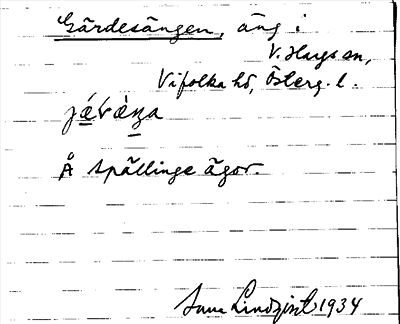 Gärdesängen, äng i
V. Hargs sn,
Vifolka hd, Österg. l.
jǽvàŋa
Å Spällinge ägor.
Sune Lindqvist 1934